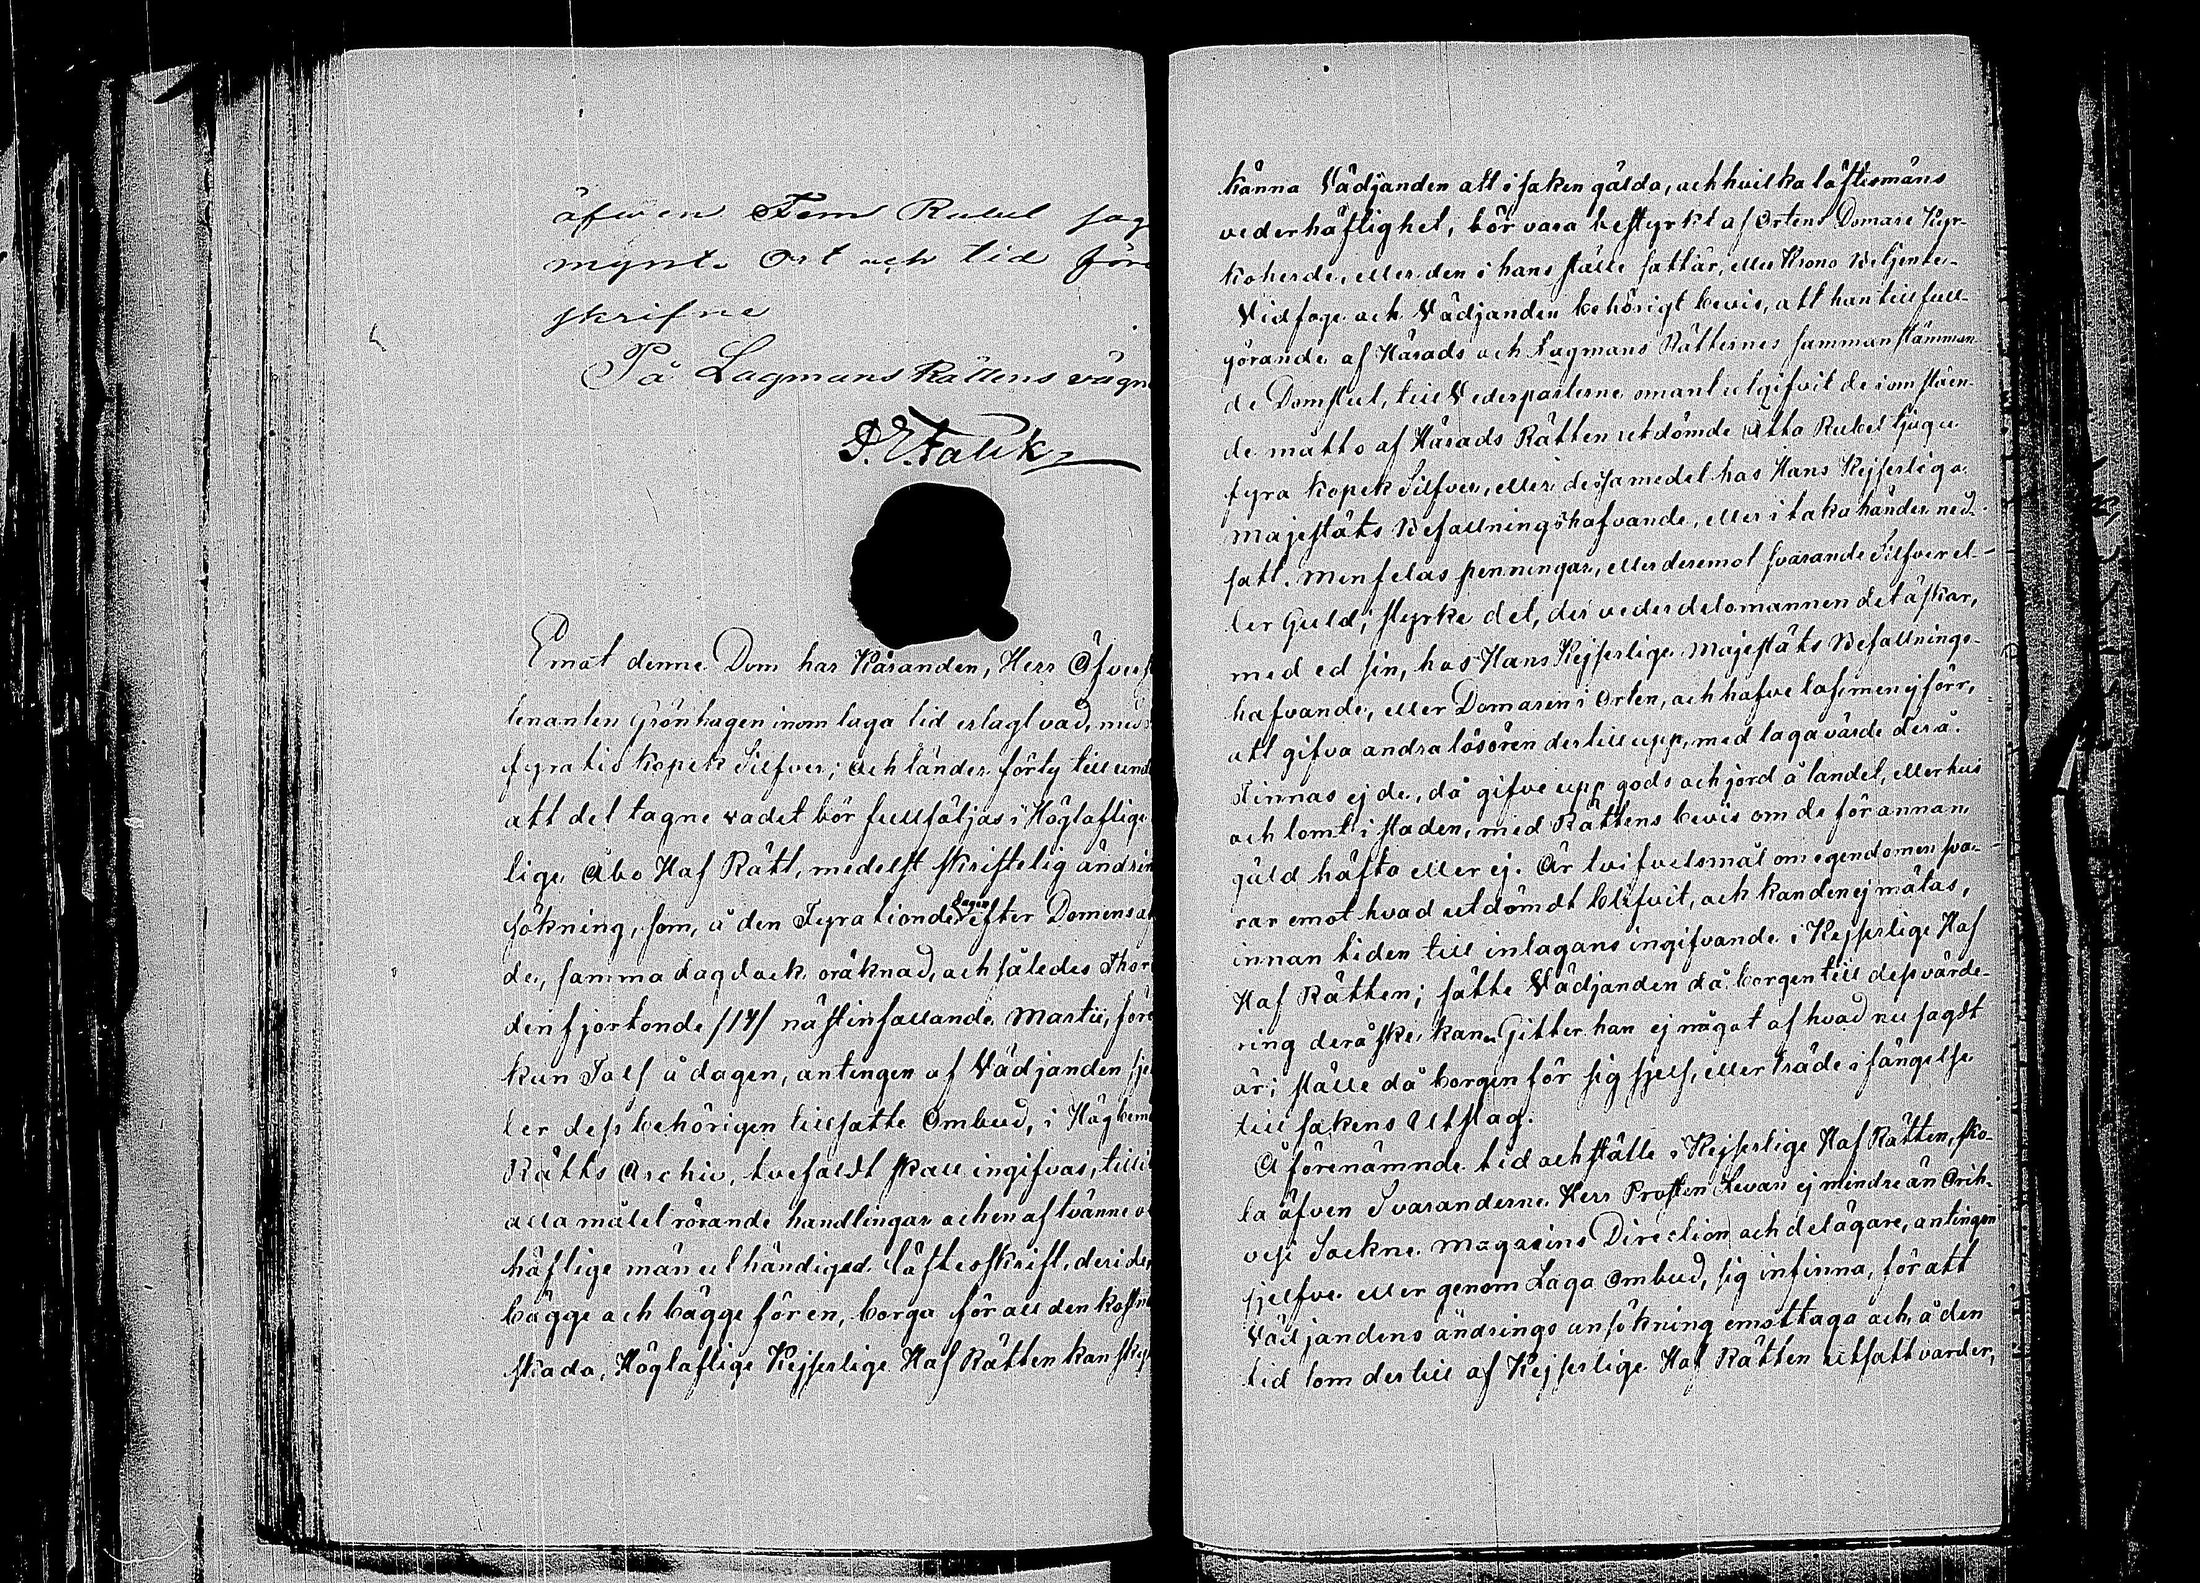 äfwen Fem Rubel sag
mynt. Ort och tid före
skrifne
På Lagmans Rättens vägn
D. E. Falck
Emot denne Dom har Käranden, Herr Öfverst
lenanten Grönhagen inom laga tid erlagt vad, med
fyratio kopek Silfver; och länder förty till und
att det tagne vadet bör fullföljas i Höglaflige
lige Åbo Hof Rätt, medelst skriftelig ändrin
sökning, som, å den Fyrationde dagen efter Domens af
de, samma dag dock oräknad, och således Thor
den fjortonde /14/ nästinfallande Martii, före
kun Tolf å dagen, antingen af Vädjanden sje
ler dess behörigen tillsatte Ombud, i Högbem
Rätts Archiv, tvefaldt skall ingifvas, tilli
alla målet rörande handlingar och en af tvänne v
häftige män uthändigad löftesskrift, deri de,
bägge och bägge för en, borga för all den kostn
skada, Höglaflige Kejserlige Hof Rätten kan sky
känna Vädjanden att i saken gälda, och hvilka löftesmäns
vederhäftighet, bör vara bestyrkt af Ortens Domare Kyr-
koherde, eller den i hans ställe satt är, eller Krono Betjente.
Vidfoge ock Vädjanden behörigt bevis, att han till full-
görande af Härads och Lagmans Rätternes sammanstämman-
de Domslut, till Vederparterne omant utgifvit de i omståen-
de måtto af Härads Rätten utdömde Åtta Rubel tjugu
fyra kopek Silfver, eller dessa medel hos Hans Kejserliga
Majestäts Befallningshafvande, eller i taka händer ned-
satt. Men felas penningar, eller deremot svarande Silfver el-
ler Guld; styrke det, der vederdelomannen det äskar,
med ed sin, hos Hans Kejserlige Majestäts Befallnings-
hafvande, eller Domaren i Orten, och hafve lof, men ej förr,
att gifva andra lösören dertill upp, med laga värde derå.
Finnas ej de, då gifve upp gods och jord å landet, eller hus
och tomt i staden, med Rättens bevis om de för annan
gäld häfta eller ej. Är tvifvelsmål om egendomen sva-
rar emot hvad utdömdt blifvit, och kan den ej mätas,
innan tiden till inlagans ingifvande i Kejserlige Hof
Hof Rätten; sätte Vädjanden då borgen till dess värde-
ring derå ske kan. Gitter han ej något af hvad nu sagdt
är; ställe då borgen för sig sjelf, eller träde i fängelse
till sakens Utslag.
Å förenämnde tid och ställe i Kejserlige Hof Rätten, sko-
la äfven Svaranderne Herr Prosten Levan ej mindre än Orih-
vesi Sockne Magasins Direction och delägare, antingen
sjelfve eller genom Laga Ombud, sig infinna, för att
Vädjandens ändrings ansökning emottaga och, å den
tid som dertill af Kejserlige Hof Rätten utsatt varder,